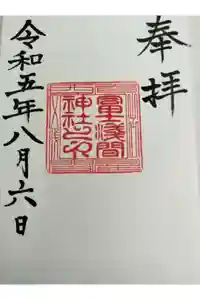 奉拝
富士浅間
神社之印
令和五年八月六日